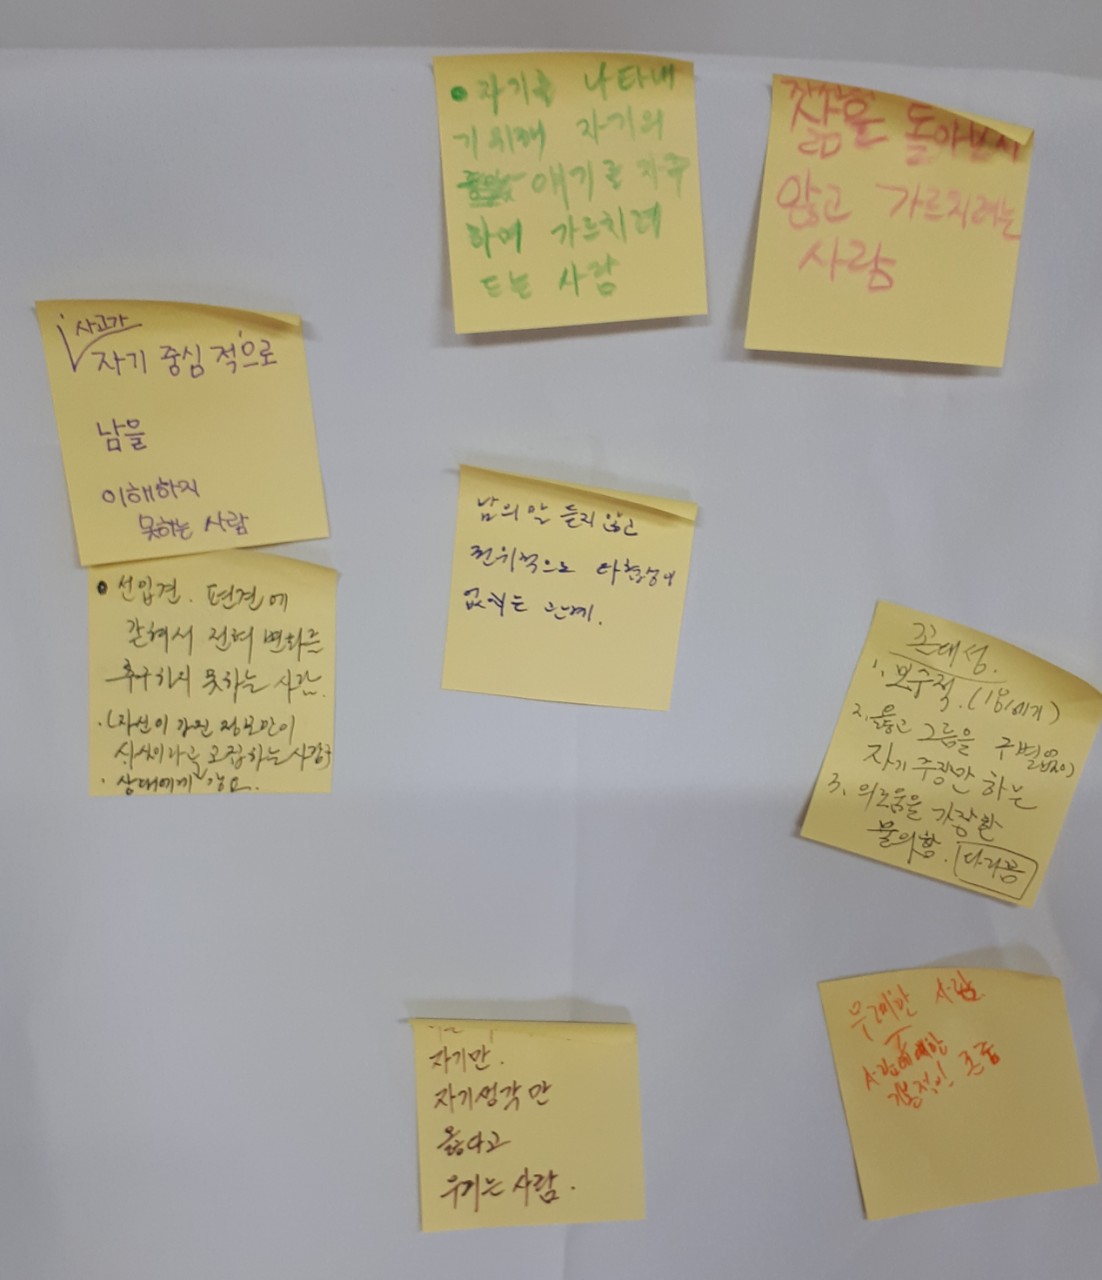 ● 자기를 나타내
기위해 자기의
얘기를 자주
하며 가르치려
드는 사람
삶을 돌아보지
않고 가르치려는
사람
사고가
자기 중심적으로
남을
이해하지
못하는 사람
● 선입견. 편견에
갇혀서 전혀 변화를
추구하지 못하는 사람.
·(자신이 가진 정보만이
고집하는 사람)
· 상대에게 강요.
남의 말 듣지 않고
권위적으로
없
꼰대성.
1. 보수적.
2. 옳고 그름을 구별없이
자기 주장만 하는
3. 의로움을 가장한
불의함.
무례한 사람
사람에 대한
기본적인 존중
자기만.
자기생각만
옳다고
우기는 사람.